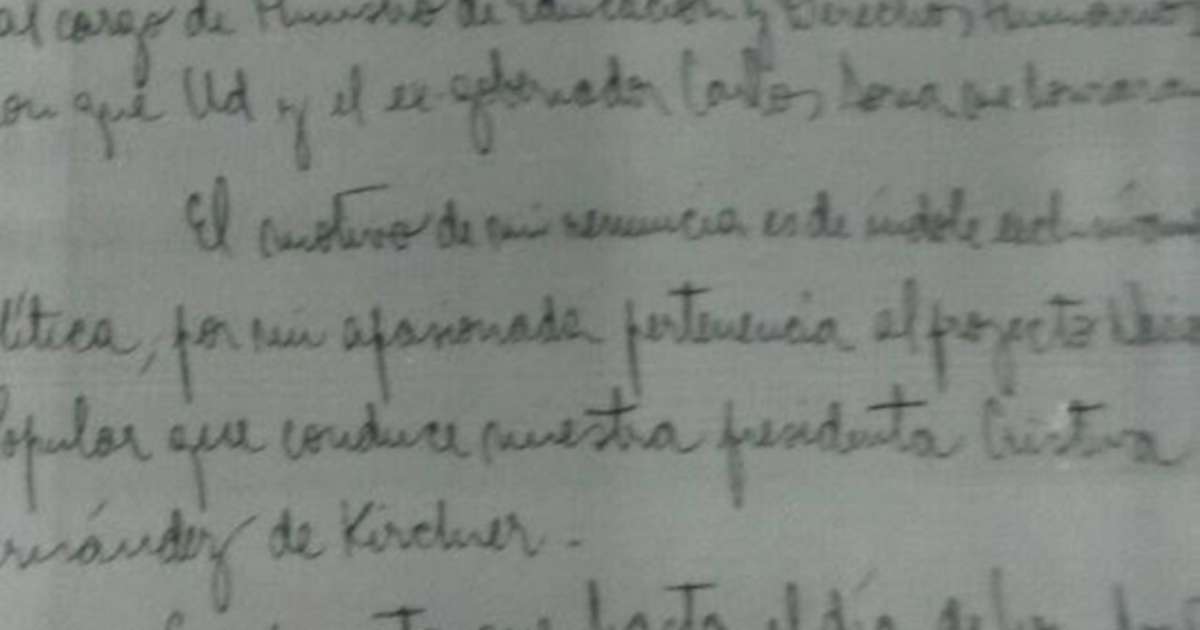 al cargo de Ministro de Educación y Derechos Humanos
on que Ud y el ex-gobernador Carlos Soria me honraron
El motivo de mi renuncia es de índole
lítica, por mi apasionada pertenencia al proyecto
Popular que conduce nuestra presidenta Cristina
rnández de Kirchner.-
que hasta el día de